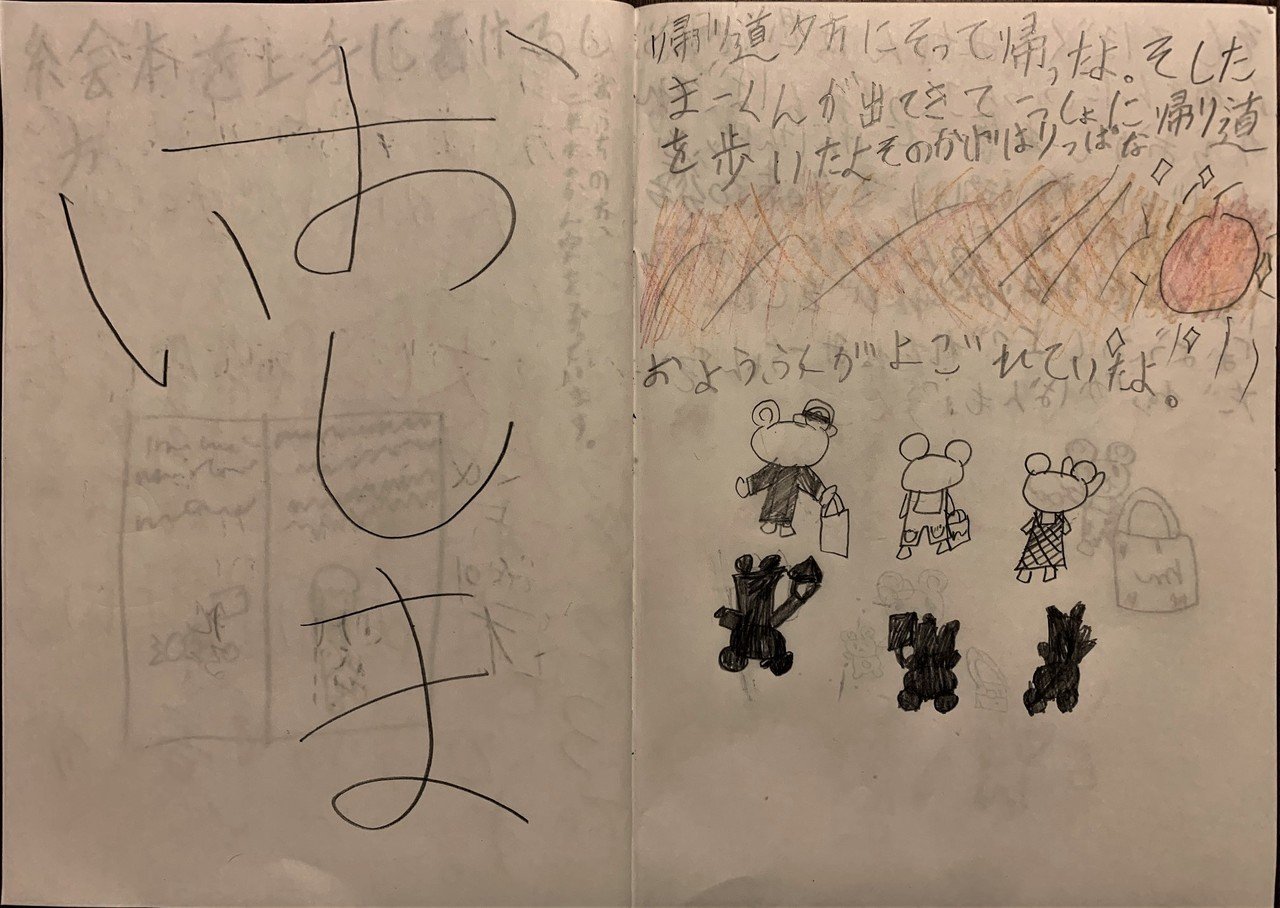 帰り道夕方にそって帰ったよ。そした
まーくんが出てきていっしょに帰り道
を歩いたよそのかげはりっぱな
おようふくがよごれていたよ。
おしま
い